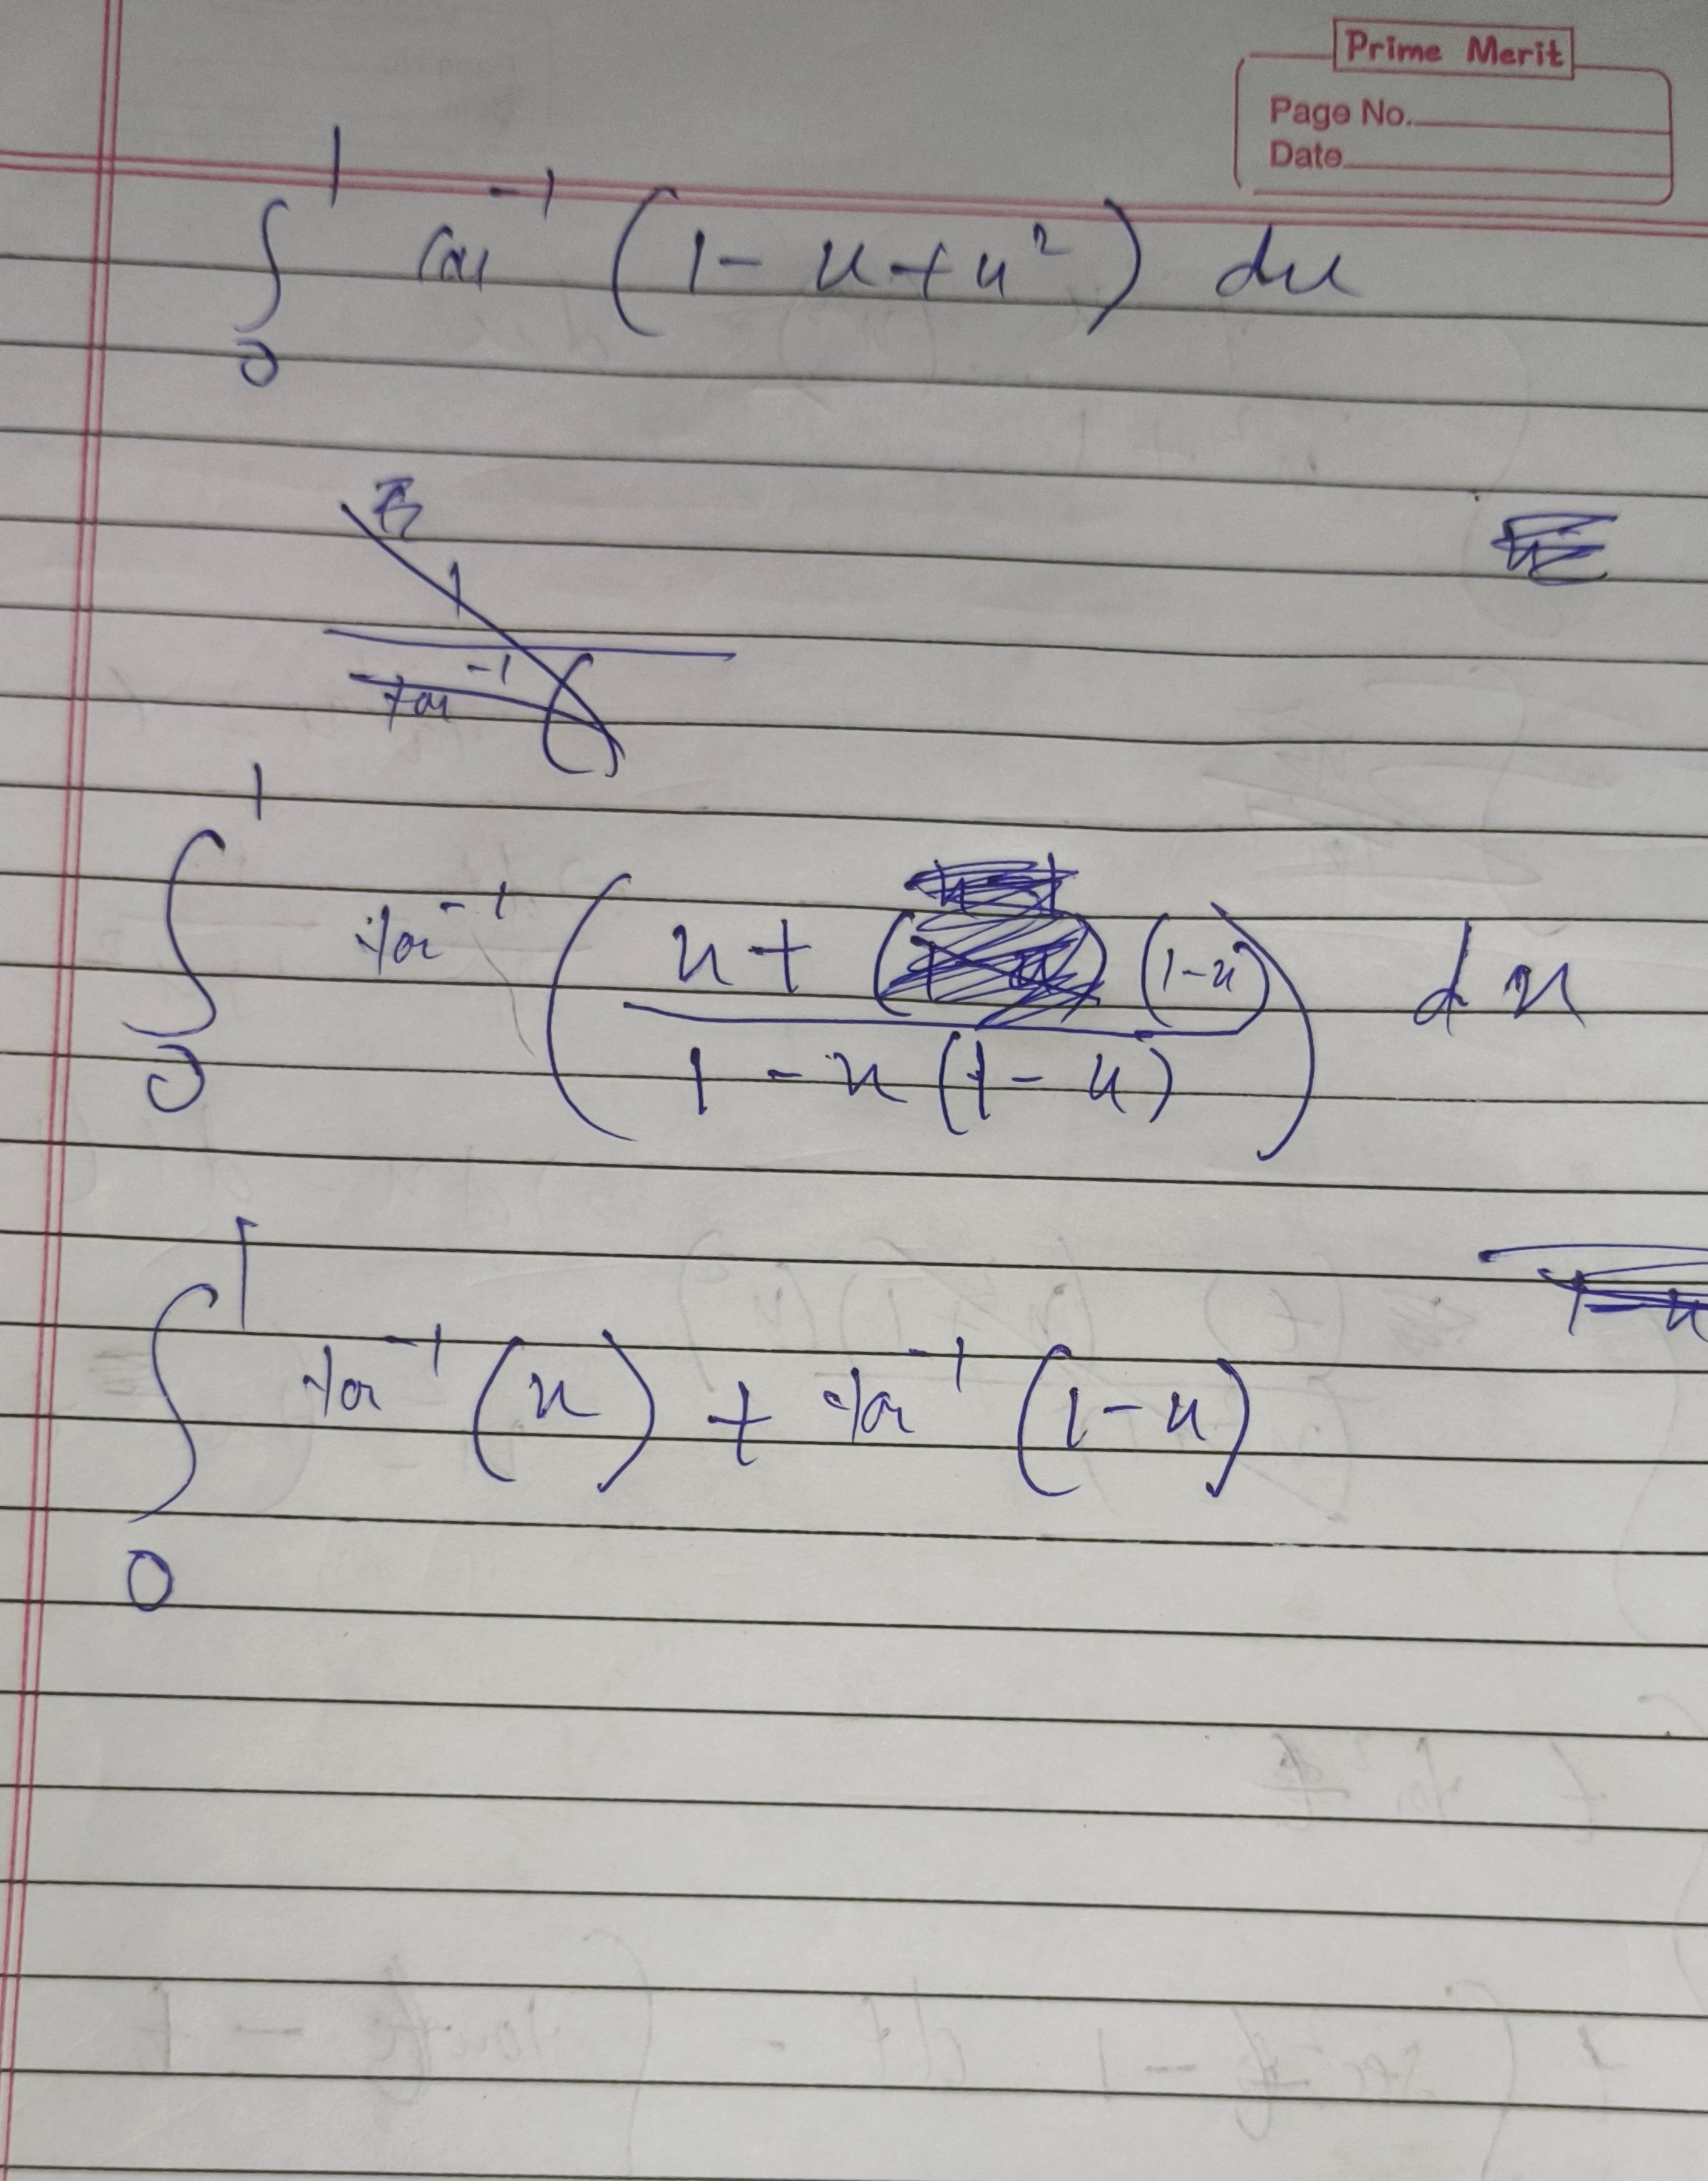 Prime Merit
Page No.
Date
∫₀¹ cot⁻¹ (1 - x + x²) dx
1
tan⁻¹ (
∫₀¹ tan⁻¹ ( x + (1-x) / 1 - x (1 - x) ) dx
1 - x
∫₀¹ tan⁻¹ (x) + tan⁻¹ (1 - x)